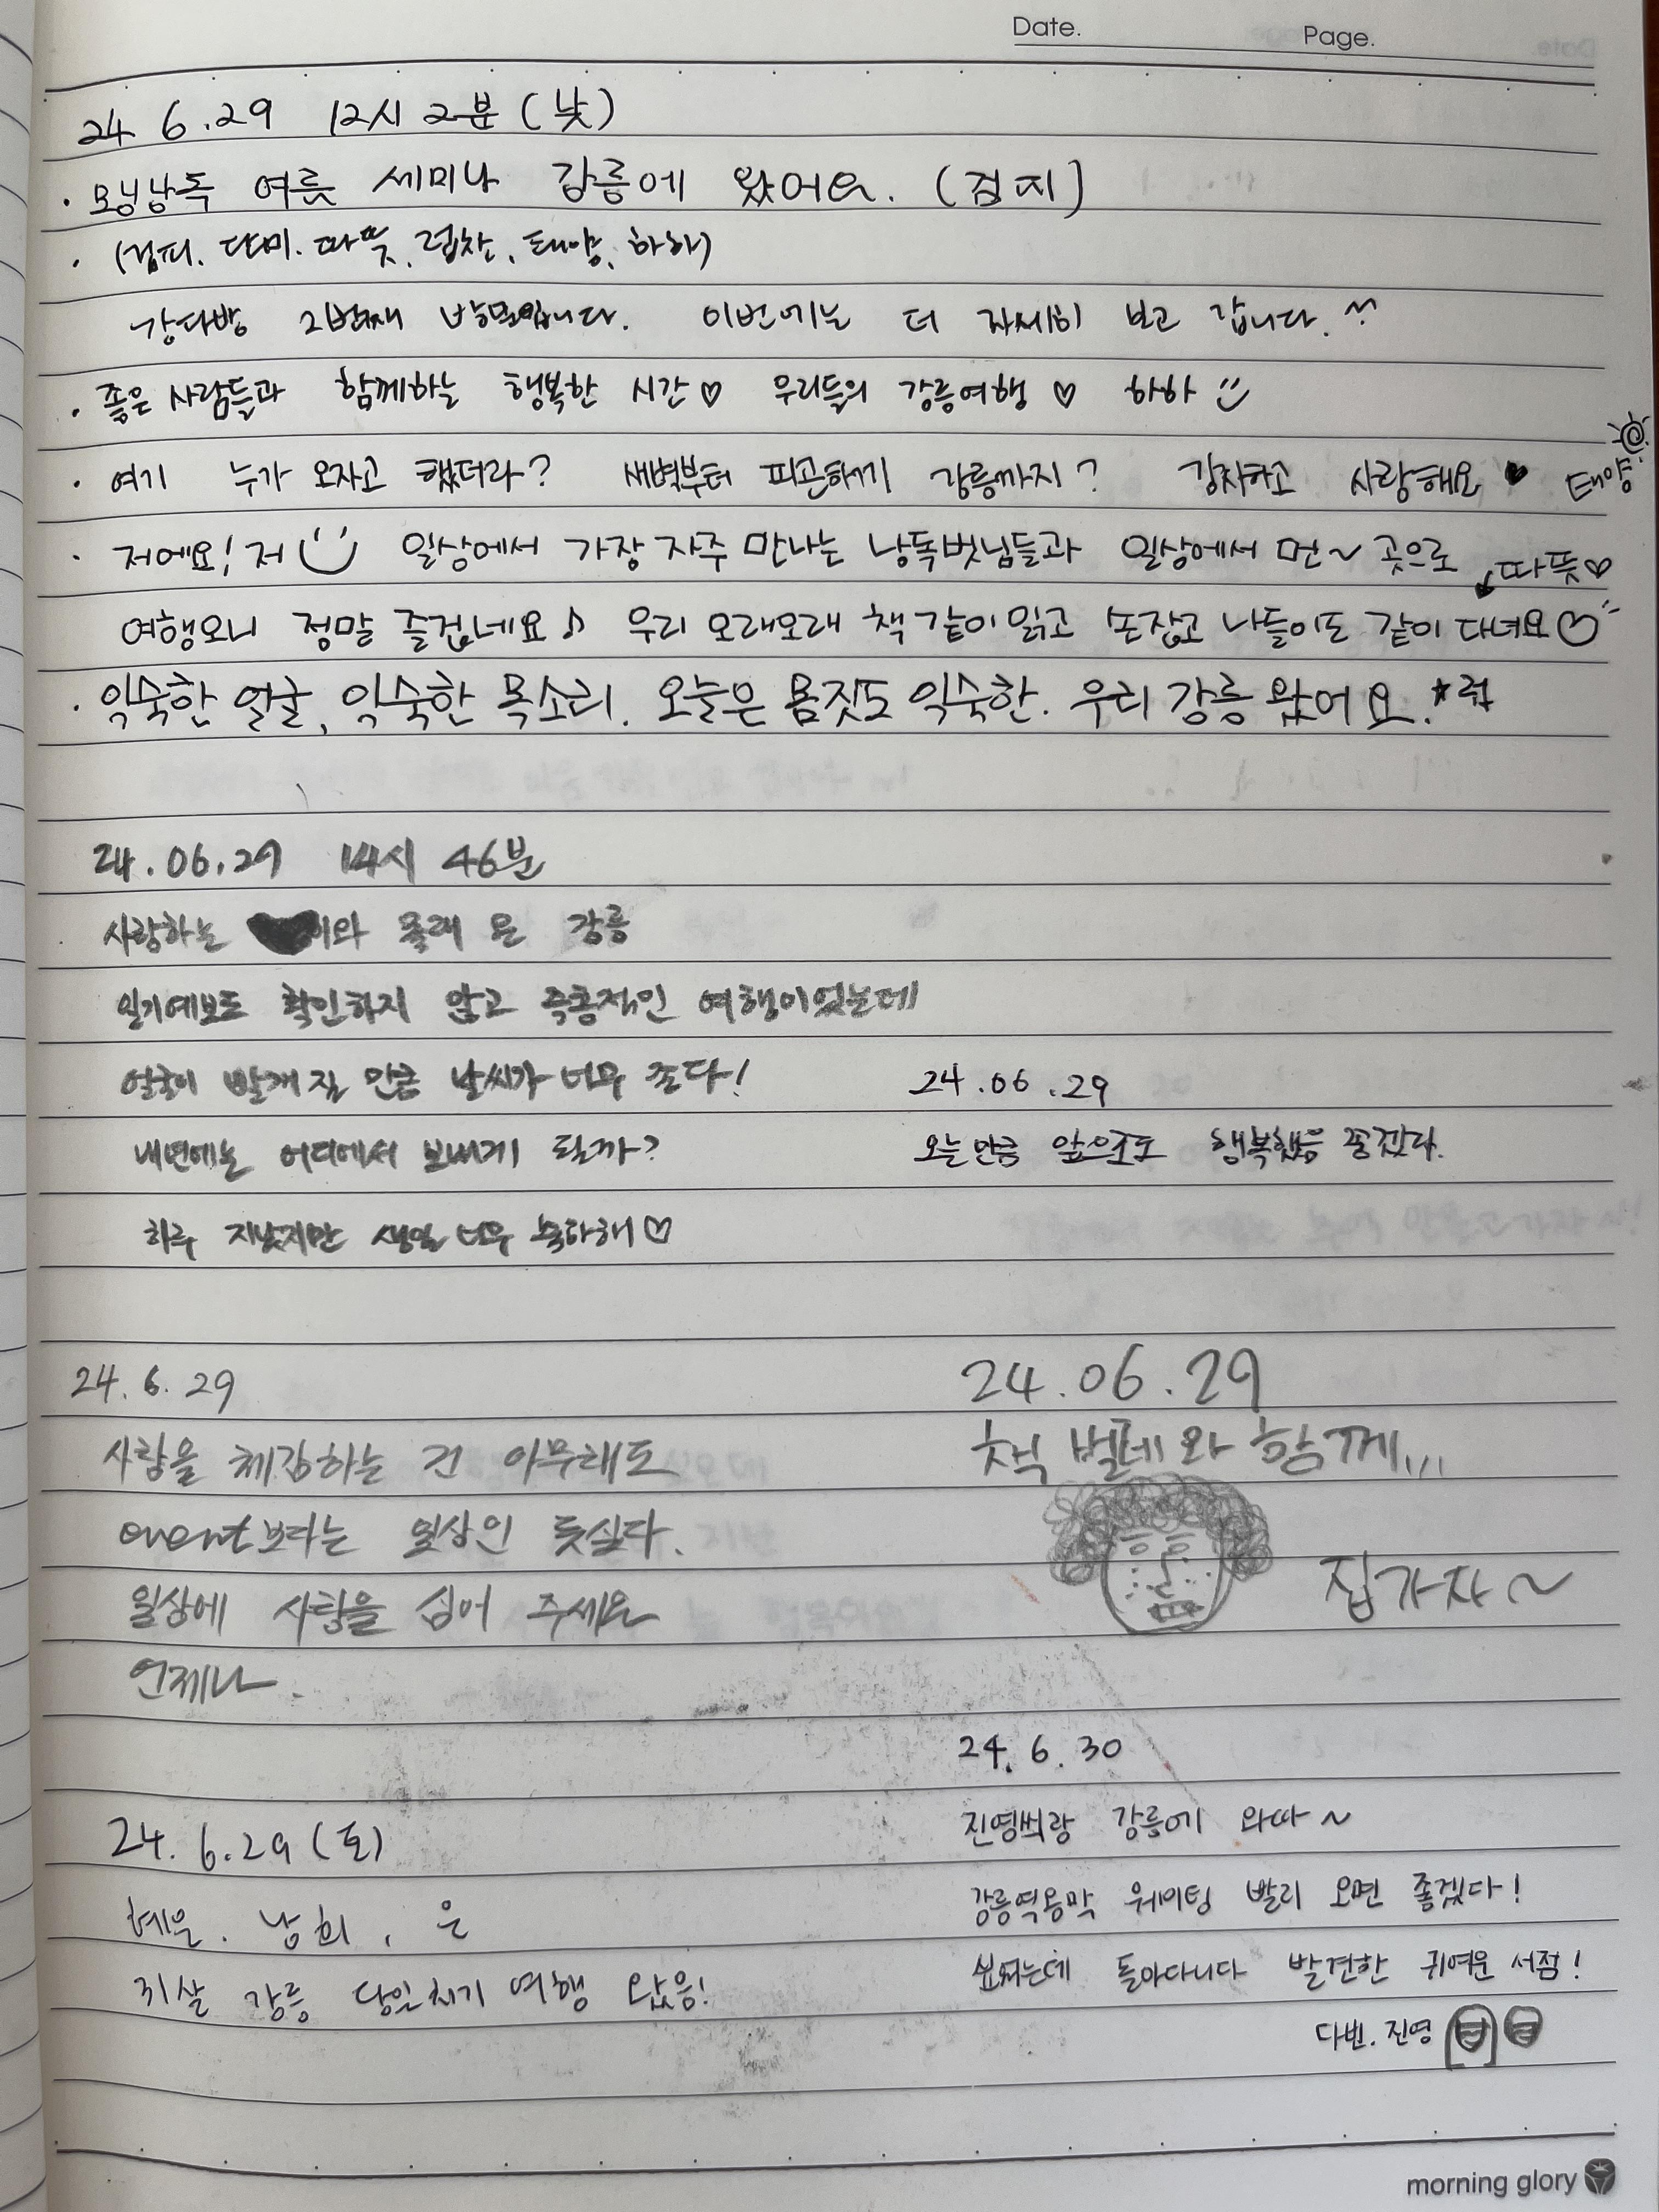 Date. Page.
24 6.29 12시 2분 (낮)
· 모닝낭독 여름 세미나 강릉에 왔어요. (검지)
· (검피. 단미. 따뜻. 럽찬. 태양. 하하)
강다방 2번째 방문입니다. 이번에는 더 자세히 보고 갑니다. ~
· 좋은 사람들과 함께하는 행복한 시간♡ 우리들의 강릉여행 ♡ 하하
· 여기 누가 오자고 했더라? 새벽부터 피곤하게 강릉까지? 감사하고 사랑해요 ♥ 태양
· 저에요! 저 일상에서 가장 자주 만나는 낭독벗님들과 일상에서 먼~ 곳으로
따뜻♡
여행오니 정말 즐겁네요♪ 우리 오래오래 책 같이 읽고 손잡고 나들이도 같이 다녀요♡
· 익숙한 얼굴, 익숙한 목소리. 오늘은 몸짓도 익숙한. 우리 강릉 왔어요. *럽
24.06.29 14시 46분
사랑하는 이와 몰래 온 강릉
일기예보도 확인하지 않고 즉흥적인 여행이었는데
얼굴이 빨개질 만큼 날씨가 너무 좋다!
내년에는 어디에서 보내게 될까?
하루 지났지만 생일 너무 축하해♡
24.06.29
오늘 만큼 앞으로도 행복했음 좋겠다.
24.6.29
사랑을 체감하는 건 아무래도
event보다는 일상인 듯싶다.
일상에 사랑을 심어 주세요
언제나.
24.06.29
책 벌레와 함께...
집가자~
24.6.29(토)
혜은. 남희, 은
31살 강릉 당일치기 여행 왔음!
24.6.30
진영씨랑 강릉에 와따~
강릉역옹막 웨이팅 빨리 오면 좋겠다!
돌아다니다 발견한 귀여운 서점!
다빈. 진영
morning glory